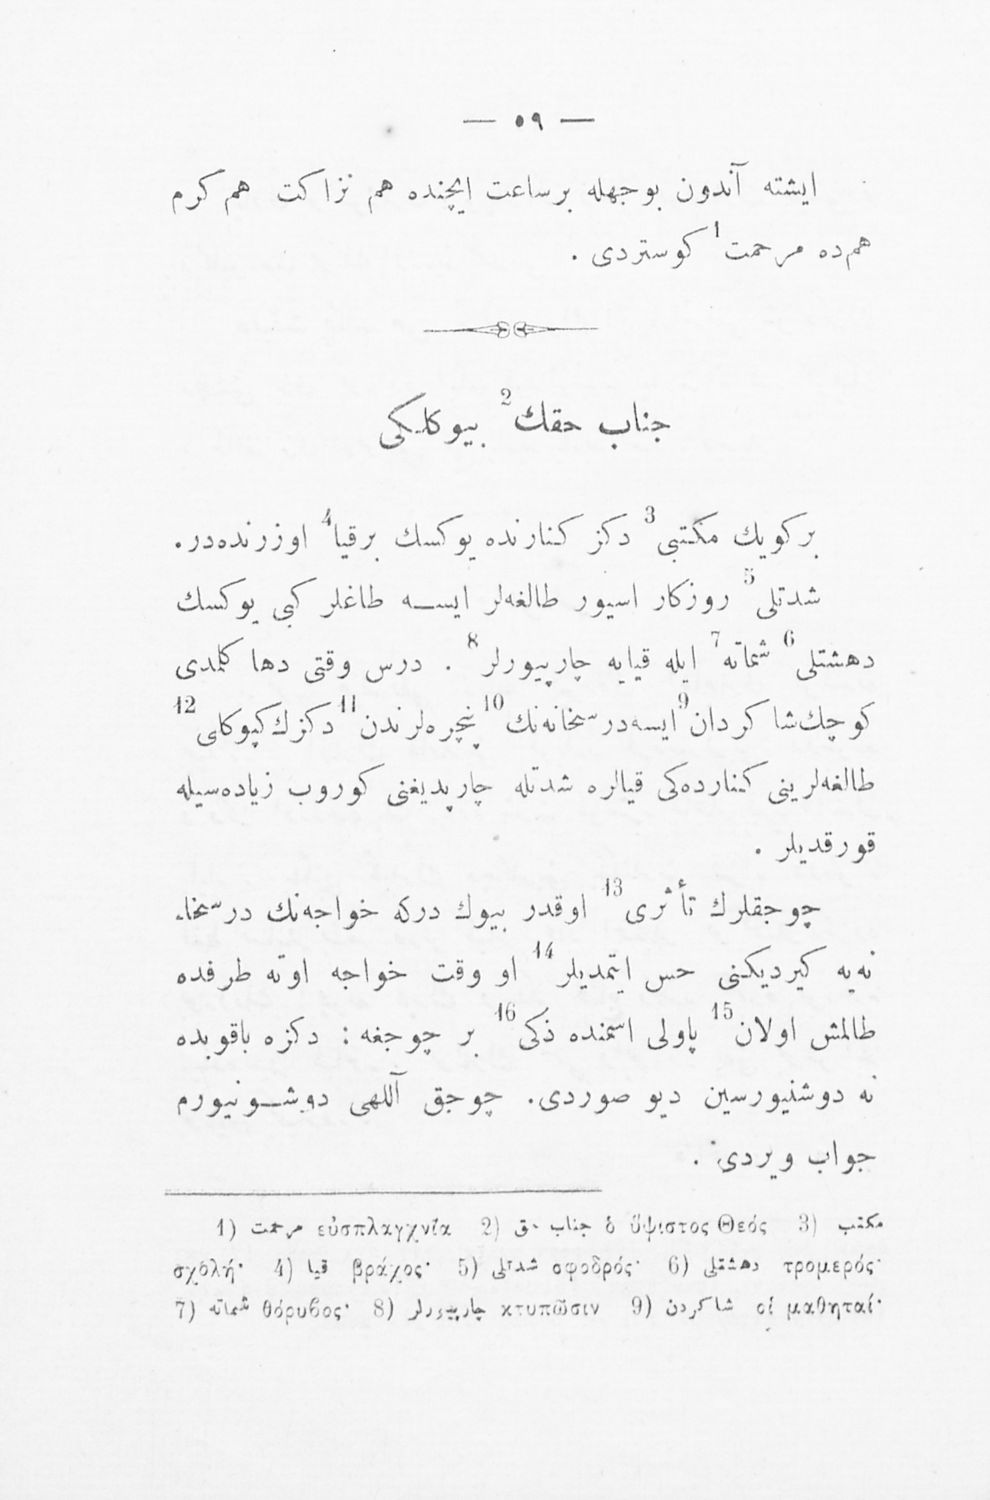 — ٥٩ —
ايشته آندون بوجهله برساعت ايچنده هم نزاكت هم كرم
هم‌ده مرحمت1 كوستردى .
جناب حقك2 بيوكلكى
بركويك مكتبى3 دكز كنارنده يوكسك برقيا4 اوزرنده‌در.
شدتلى5 روزكار اسيور طالغه‌لر ايسه طاغلر كبى يوكسك
دهشتلى6 شماته7 ايله قيايه چارپيورلر8 . درس وقتى دها كلمدى
كوچك شاكردان9 ايسه درسخانه‌نك10 پنچره‌لرندن11 دكزك كپوكلى12
طالغه‌لرينى كنارده‌كى قيالره شدتله چارپديغنى كوروب زياده‌سيله
قورقديلر .
چوجقلرك تأثرى13 اوقدر بيوك دركه خواجه‌نك درسخا-
نه‌يه كيرديكنى حس ايتمديلر14 او وقت خواجه اوته طرفده
طالمش اولان15 پاولى اسمنده ذكى16 بر چوجغه : دكزه باقوبده
نه دوشنيورسين ديو صوردى. چوجق آللهى دوشونيورم
جواب ويردى .
1) مرحمت εὐσπλαγχνία 2) جناب حق ὁ ὕψιστος Θεός 3) مكتب
σχολή· 4) قيا βράχος· 5) شدتلى σφοδρός· 6) دهشتلى τρομερός·
7) شماته θόρυβος· 8) چارپيورلر κτυπῶσιν 9) شاكردن οἱ μαθηταί·